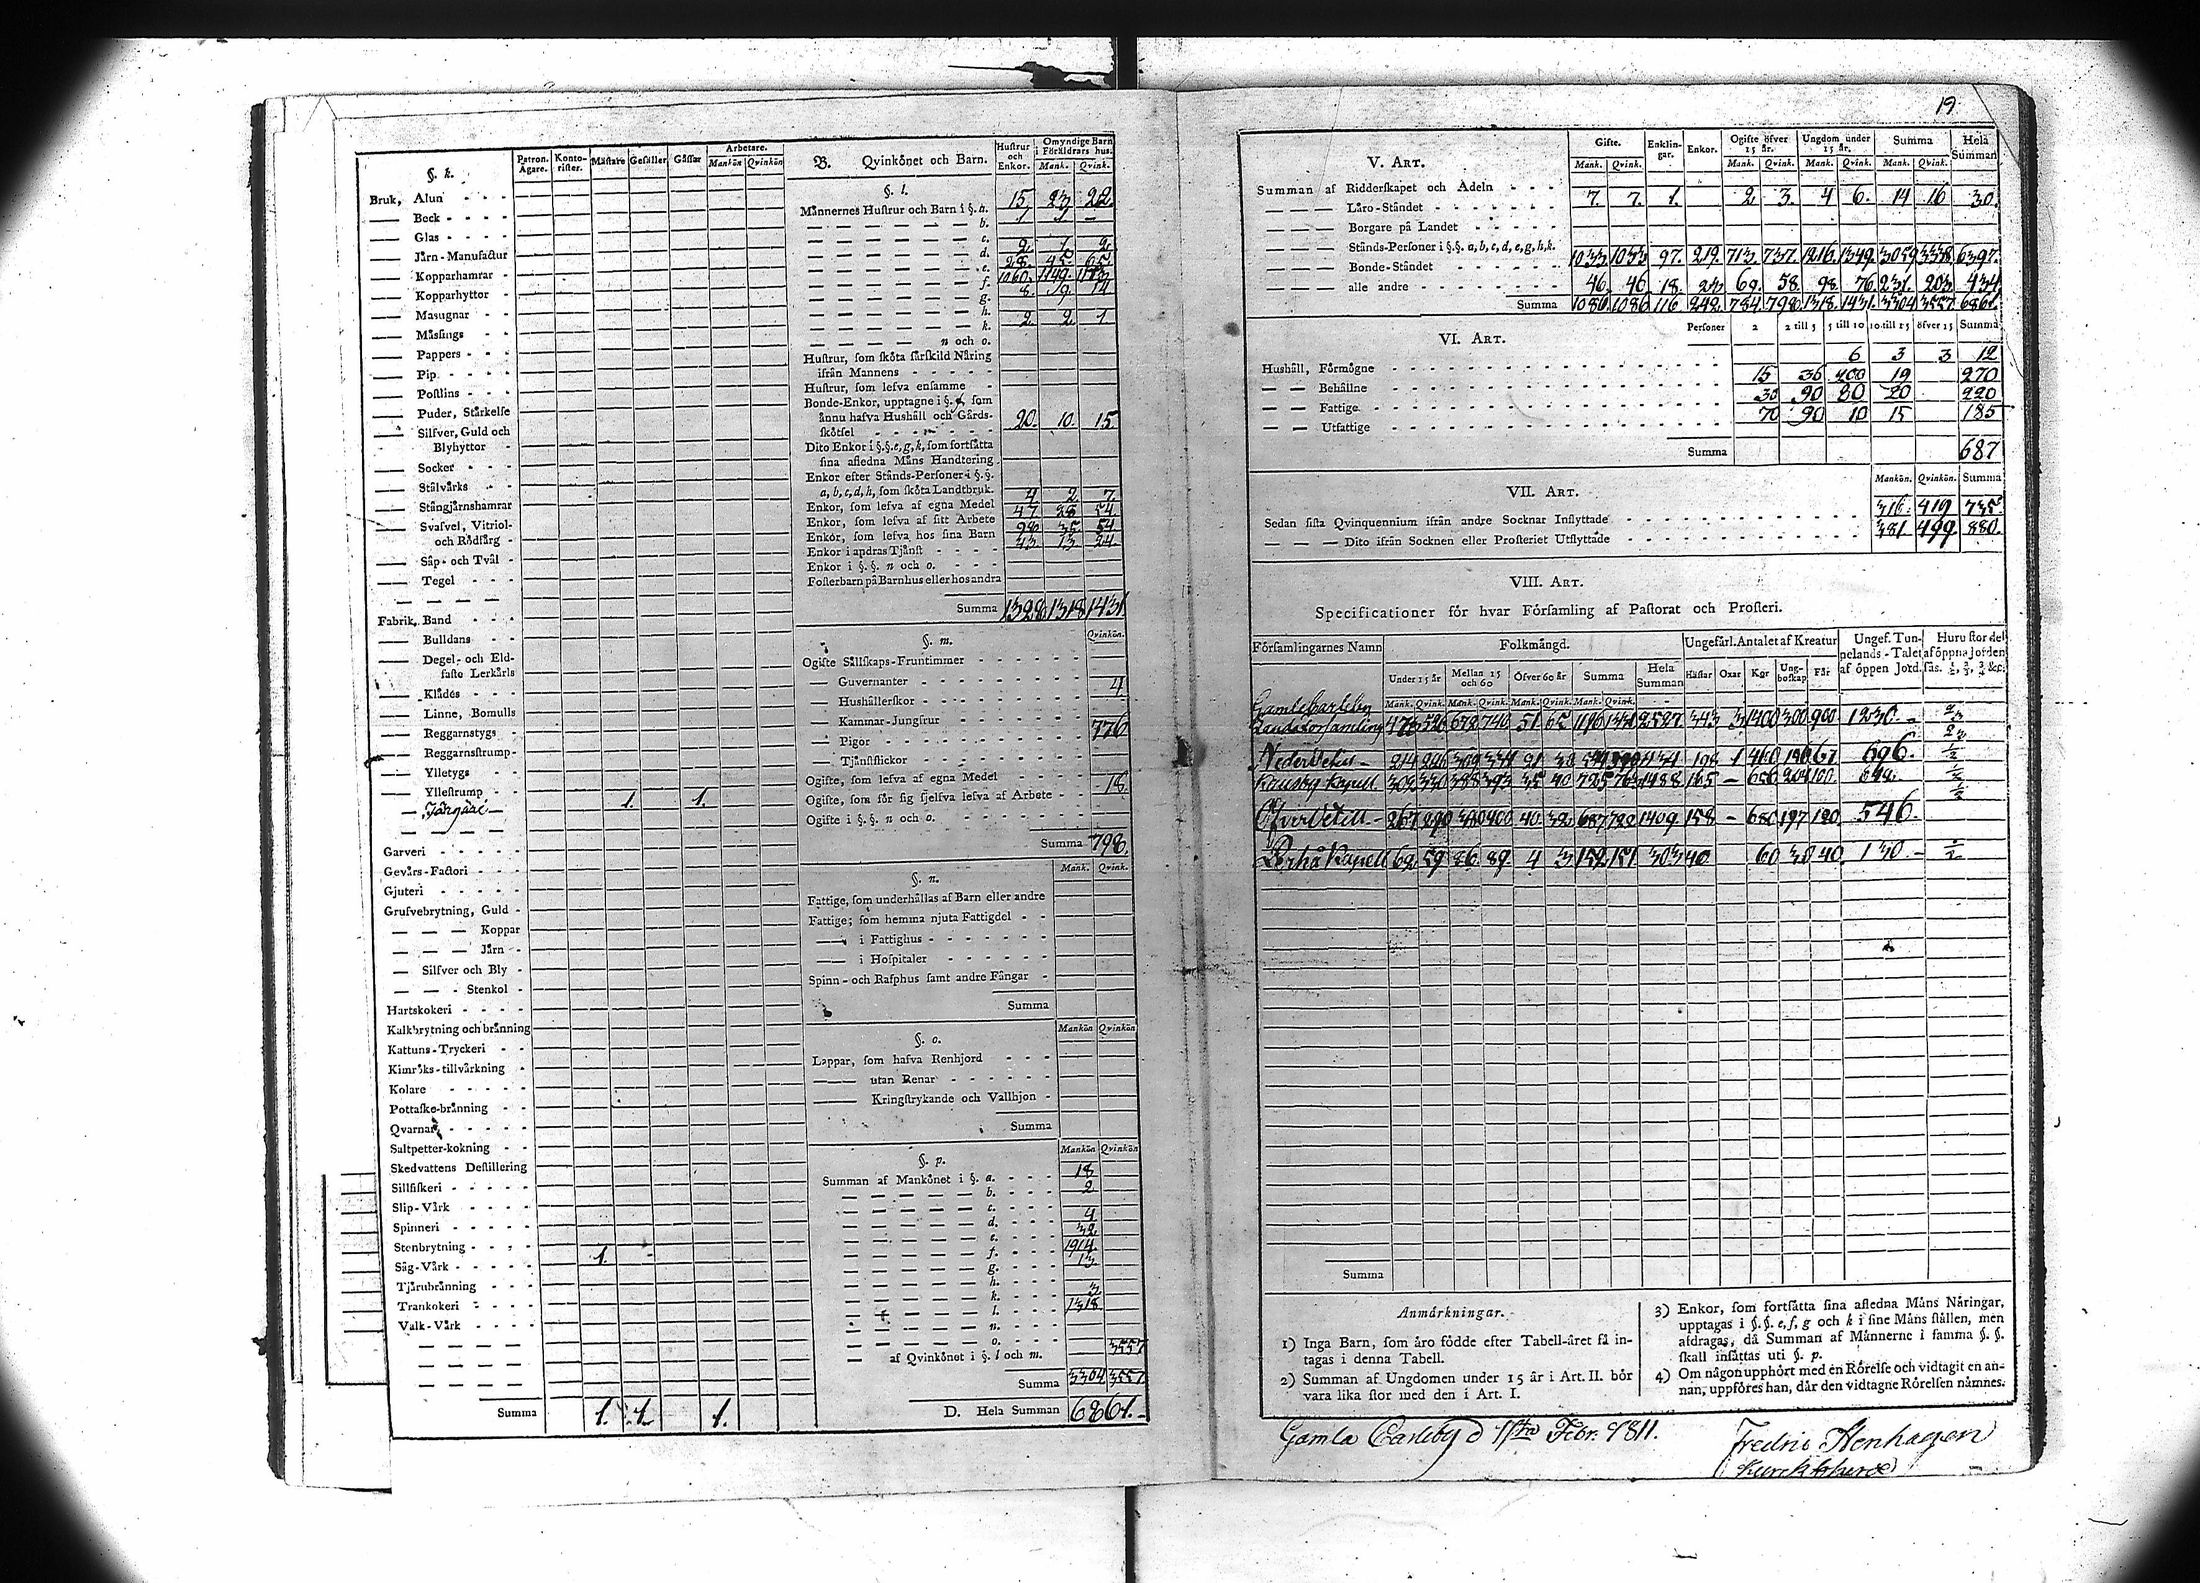 19
§. k.
Patron. Ägare. Kontorister. Mästare Gesäller Gåssar Arbetare. Mankön Qvinkön
Bruk, Alun - - -
—— Beck - - - -
—— Glas - - - -
—— Järn-Manufactur
—— Kopparhamrar -
—— Kopparhyttor -
—— Masugnar - -
—— Måssings - -
—— Pappers - - -
—— Pip - - - -
—— Postlins - - -
—— Puder, Stårkelse
—— Silfver, Guld och
Blyhyttor -
—— Socker - - -
—— Stålvårks - -
—— Stångjårnshamrar
—— Svafvel, Vitriol-
och Rödfårg -
—— Såp- och Tvål -
—— Tegel - - -
— — — — —
Fabrik, Band - - -
—— Bulldans - -
—— Degel- och Eld-
fasto Lerkårls
—— Klådes - - -
—— Linne, Bomulls
—— Reggarnstygs -
—— Reggarnsstrump-
—— Ylletygs - -
—— Yllestrump - -
1. 1.
— — — — —
Garveri - - - - -
Gevårs-Factori - - -
Gjuteri - - - - -
Grufvebrytning, Guld -
— — — Koppar
— — — Jårn -
— Silfver och Bly -
— — — Stenkol -
Hartskokeri - - - -
Kalkbrytning och brånning
Kattuns-Tryckeri - -
Kimröks-tillvårkning -
Kolare - - - - -
Pottaske-brånning - -
Qvarnar - - - - -
Saltpetter-kokning - -
Skedvattens Destillering
Sillfiskeri - - - - -
Slip-Vårk - - - -
Spinneri - - - - -
Stenbrytning - - - -
Såg-Vårk - - - - - 1.
Tjårubrånning - - -
Trankokeri - - - -
Valk-Vårk - - - -
— — — — —
— — — — —
— — — — —
Summa 1. 1. 1.
B. Qvinkönet och Barn. Hustrur och Enkor. Omyndige Barn i Föräldrars hus. Mank. Qvink.
§. l.
Månnernes Hustrur och Barn i §. a. 15. 23 22.
— — — — — b. 1 1 —
— — — — — c.
— — — — — d. 2. 1. 2.
— — — — — e. 28. 45. 65.
— — — — — f. 1060. 1149.
— — — — — g. 8. 19. 14
— — — — — h.
— — — — — k. 2. 2. 1
— — — — n och o.
Hustrur, som sköta sårskild Nåring
ifrån Mannens - - - - -
Hustrur, som lefva ensamme -
Bonde-Enkor, upptagne i §. f, som
ånnu hafva Hushåll och Gårds-
skötsel - - - - - - - 20. 10. 15
Dito Enkor i §.§. e, g, k, som fortsåtta
sina afledna Måns Handtering -
Enkor efter Stånds-Personer i §.§.
a, b, c, d, h, som sköta Landtbruk. 4 2. 7.
Enkor, som lefva af egna Medel 47 28 54.
Enkor, som lefva af sitt Arbete 98. 35 54
Enkor, som lefva hos sina Barn 43. 13 24.
Enkor i andras Tjånst - - - -
Enkor i §. §. n och o. - - -
Fosterbarn på Barnhus eller hos andra
Summa 1328. 1318 1431.
§. m. Qvinkön.
Ogifte Sållskaps-Fruntimmer - - - - - -
— Guvernanter - - - - - - - -
— Hushållerskor - - - - - - - 4.
— Kammar-Jungfrur - - - - - -
— Pigor - - - - - - - - - 776
— Tjånstflickor - - - - - - -
Ogifte, som lefva af egna Medel - - - -
Ogifte, som för sig sjelfva lefva af Arbete - - 18.
Ogifte i §. §. n och o. - - - - - - -
Summa 798.
§. n. Mank. Qvink.
Fattige, som underhållas af Barn eller andre
Fattige, som hemma njuta Fattigdel - -
—— i Fattighus - - - - - - -
—— i Hospitaler - - - - - -
Spinn- och Rasphus samt andre Fångar -
Summa
§. o. Mankön Qvinkön
Lappar, som hafva Renhjord - - -
—— utan Renar - - - - -
—— Kringstrykande och Vallhjon -
Summa
§. p. Mankön Qvinkön
Summan af Mankönet i §. a. - - - 18
— — — — — b. - - - 2
— — — — — c. - - -
— — — — — d. - - - 4
— — — — — e. - - - 32
— — — — — f. - - - 1914.
— — — — — g. - - - 13
— — — — — h. - - -
— — — — — k. - - - 3
— — — — — l. - - - 1318
— — — — — n. - - -
— — — — — o. - - -
— af Qvinkönet i §. l och m. 3557
Summa 3304 3557
D. Hela Summan 6861.
V. Art. Gifte. Mank. Qvink. Enklingar. Enkor. Ogifte öfver 15 år. Mank. Qvink. Ungdom under 15 år. Mank. Qvink. Summa Mank. Qvink. Hela Summan
Summan af Ridderskapet och Adeln - - -
— — — Låro-Ståndet - - - - - - 7. 7. 1. 2. 3. 4 6. 14 16 30.
— — — Borgare på Landet - - - - -
— — — Stånds-Personer i §.§. a, b, c, d, e, g, h, k.
— — — Bonde-Ståndet - - - - - 1033 1033 97. 219. 713. 737. 1216. 1349. 3059 3338. 6397.
— — — alle andre - - - - - - - 46. 46 18. 23 69. 58. 98. 76 231. 203 434
Summa 1086. 1086 116 242. 784 798. 1318. 1431. 3304 3557. 6861.
VI. Art. Personer 2 2 till 5 5 till 10 10 till 15 öfver 15 Summa
Hushåll, Förmögne - - - 6 3 3 12
— — Behållne - - - 15 36 200 19 270
— — Fattige - - - 30 90 80 20 220
— — Utfattige - - - 70 90 10 15 185
Summa 687
VII. Art. Mankön. Qvinkön. Summa
Sedan sista Qvinquennium ifrån andre Socknar Inflyttade - - - 316. 419 735
— — — Dito ifrån Socknen eller Prosteriet Utflyttade - - - 381. 499. 880.
VIII. Art.
Specificationer för hvar Församling af Pastorat och Prosteri.
Församlingarnes Namn Folkmångd. Ungefårl. Antalet af Kreatur Ungef. Tunnelands-Talet af öppen Jord. Huru stor del af öppna Jorden sås. ½, ⅔, ¾ &c.
Under 15 år Mellan 15 och 60 Öfver 60 år Summa Hela Summan Håstar Oxar Kor Ungboskap Får
Mank. Qvink. Mank. Qvink. Mank. Qvink. Mank. Qvink.
Gamlecarleby
Landsförsamling 473 526 672 740 51 65 1196 1331 2527 343 3 1400 300 900 1230. - ⅔
NederVetil - 309 334 21 30 198 1 696. - ½
Kapell 302 330 388 393 35 40 725 763 1488 165 - ½
ÖfverVetill - 267 290 380 400 40. 32 687 722 1409 158 - 680 197 120. 546. ½
Kapell 62. 59 86. 89. 4 3 152 151 303 40. 60 30 40. 130. - ½
Summa
Anmårkningar.
1) Inga Barn, som åro födde efter Tabell-året få in-
tagas i denna Tabell.
2) Summan af Ungdomen under 15 år i Art. II. bör
vara lika stor med den i Art. I.
3) Enkor, som fortsåtta sina afledna Måns Nåringar,
upptagas i §. §. e, f, g och k i sine Måns stållen, men
afdragas, då Summan af Månnerne i samma §. §.
skall insåttas uti §. p.
4) Om någon upphört med en Rörelse och vidtagit en an-
nan, uppföres han, dår den vidtagne Rörelsen nåmnes.
Gamla Carleby d 1sta Febr. 1811.
Fredric Stenhagen